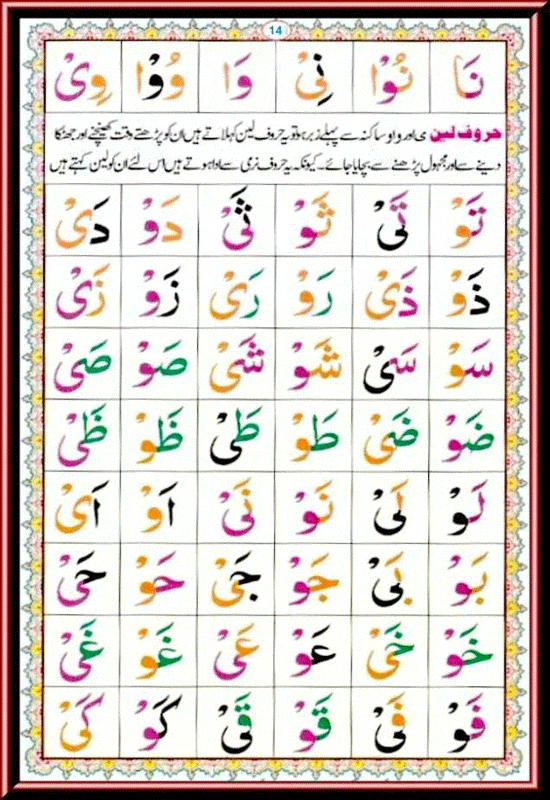 14
نَا نُوْا نِیْ وَا وُوْا وِیْ
حروف لین ی اور و او ساکنہ سے پہلے زبر ہو تو یہ حروف لین کہلاتے ہیں ان کو پڑھتے وقت کھینچنے اور جھٹکا
دینے سے اور مجہول پڑھنے سے بچایا جائے۔ کیونکہ یہ حروف نرمی سے ادا ہوتے ہیں اس لئے ان کو لین کہتے ہیں
تَوْ تَیْ ثَوْ ثَیْ دَوْ دَیْ
ذَوْ ذَیْ رَوْ رَیْ زَوْ زَیْ
سَوْ سَیْ شَوْ شَیْ صَوْ صَیْ
ضَوْ ضَیْ طَوْ طَیْ ظَوْ ظَیْ
لَوْ لَیْ نَوْ نَیْ اَوْ اَیْ
بَوْ بَیْ جَوْ جَیْ حَوْ حَیْ
خَوْ خَیْ عَوْ عَیْ غَوْ غَیْ
فَوْ فَیْ قَوْ قَیْ كَوْ كَیْ